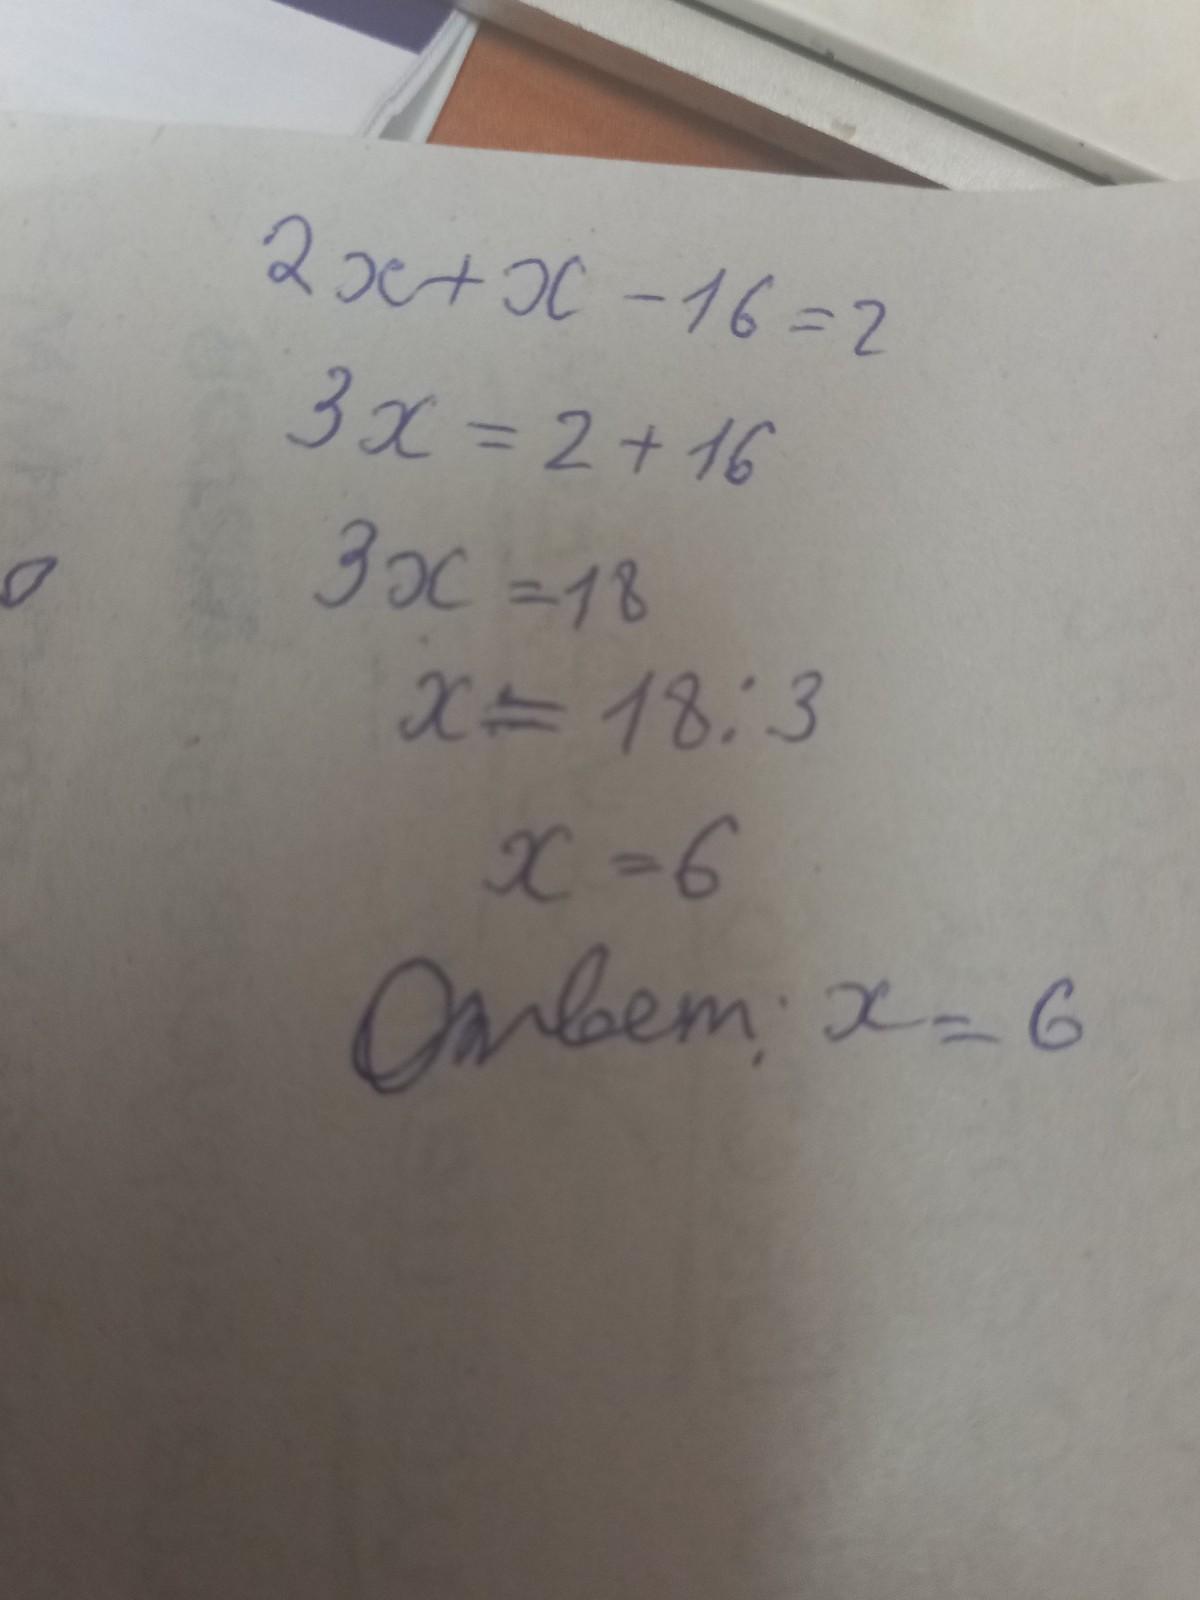 2x+x-16=2
3x=2+16
3x=18
x=18:3
x=6
Ответ: x=6